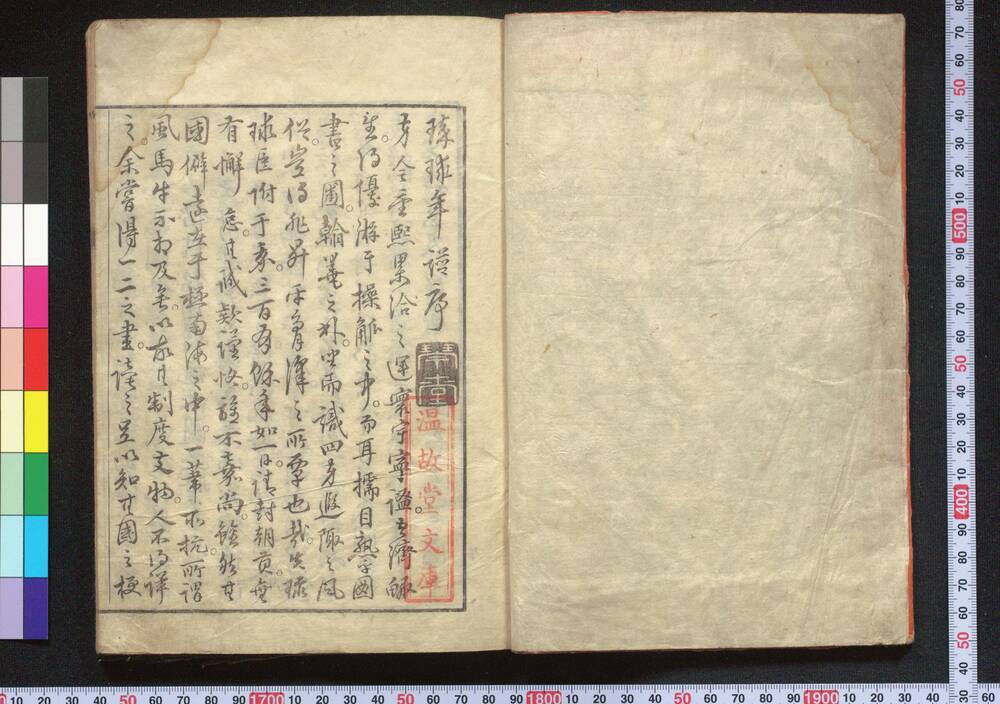 琉球年譜序
方今重熙累洽之運寰宇寧謐生済
生得優游于操觚之中而耳擩目熟図
書之圃翰墨之林坐而識四方遐陬之風
俗豈得非昇平膏澤之所覃也哉其琉
球臣附于我三百有餘年如一日請封朝貢無
有懈怠其誠款謹恪誰不嘉尚餘然其
國僻遠在于極南海之中一葦不抗所謂
風馬牛不相及無以求其制度文物人不得詳
之余嘗得一二之書讀之足以知其國之梗
温故堂文庫